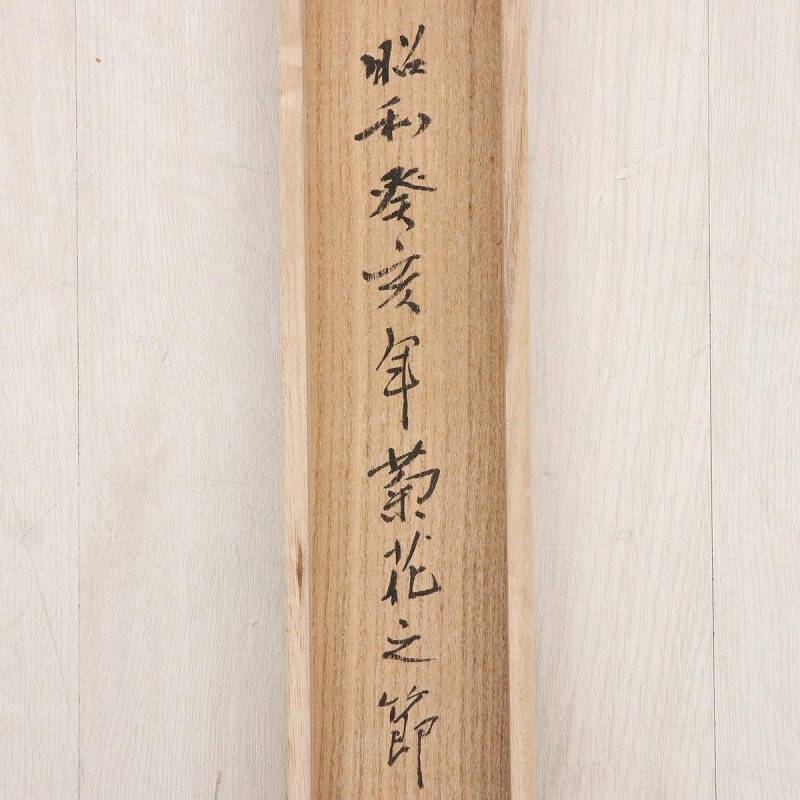 昭和癸亥年菊花之節